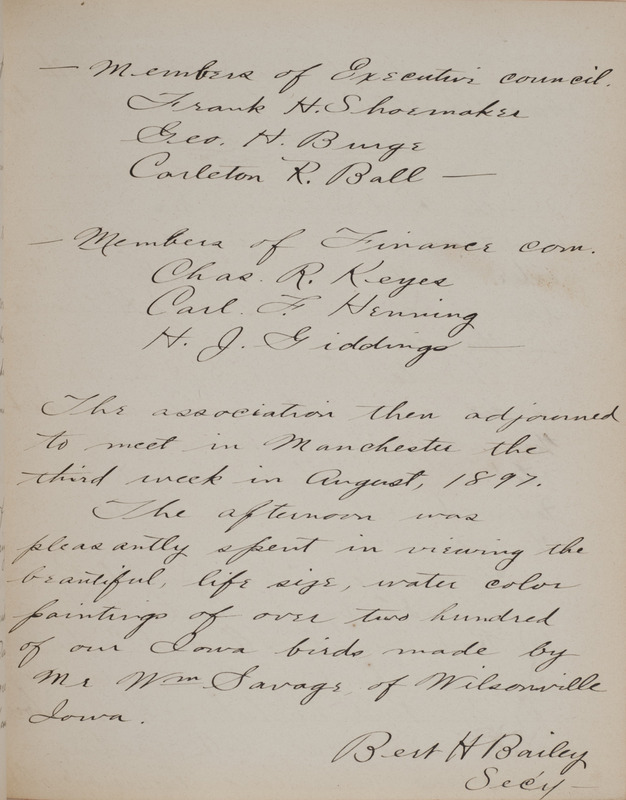 — Members of Executive council.
Frank H. Shoemaker
Geo. H. Burge
Carleton R. Ball —
— Members of Finance com.
Chas. R. Keyes
Carl. F. Henning
H. J. Giddings —
The association then adjourned
to meet in Manchester the
third week in August, 1897.
The afternoon was
pleasantly spent in viewing the
beautiful, life size, water color
paintings of over two hundred
of our Iowa birds made by
Mr Wm Savage, of Wilsonville
Iowa.
Bert H Bailey
Sec'y —